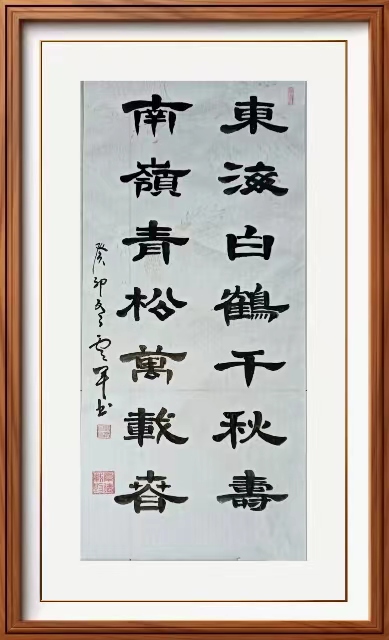 東海白鶴千秋壽
南嶺青松萬載春
癸卯冬雲军书